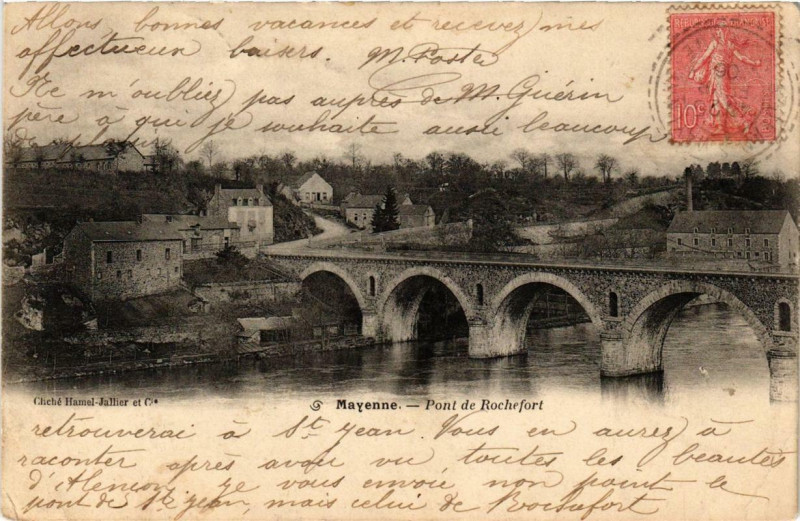 Allons, bonnes vacances et recevez mes
affectueux baisers. M. Poster
Ne m'oubliez pas auprès de M. Guérin
père à qui je souhaite aussi beaucoup
de
RÉPUBLIQUE FRANÇAISE
10c
Cliché Hamel-Jallier et Cie
Mayenne. — Pont de Rochefort
retrouverai à St Jean. Vous en aurez à
raconter après avoir vu toutes les beautés
d'Alençon, je vous envoie non point le
pont de St Jean, mais celui de Rochefort